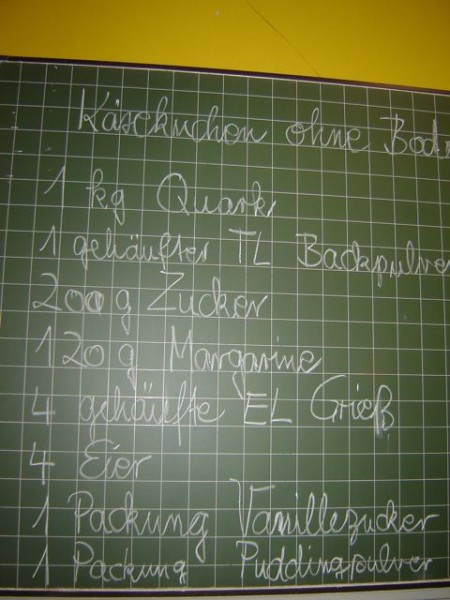 Käsekuchen ohne Bod
1 kg Quark
1 gehäufter TL Backpulve
200 g Zucker
120 g Margarine
4 gehäufte EL Grieß
4 Eier
1 Packung Vanillezucker
1 Packung Puddingpulver